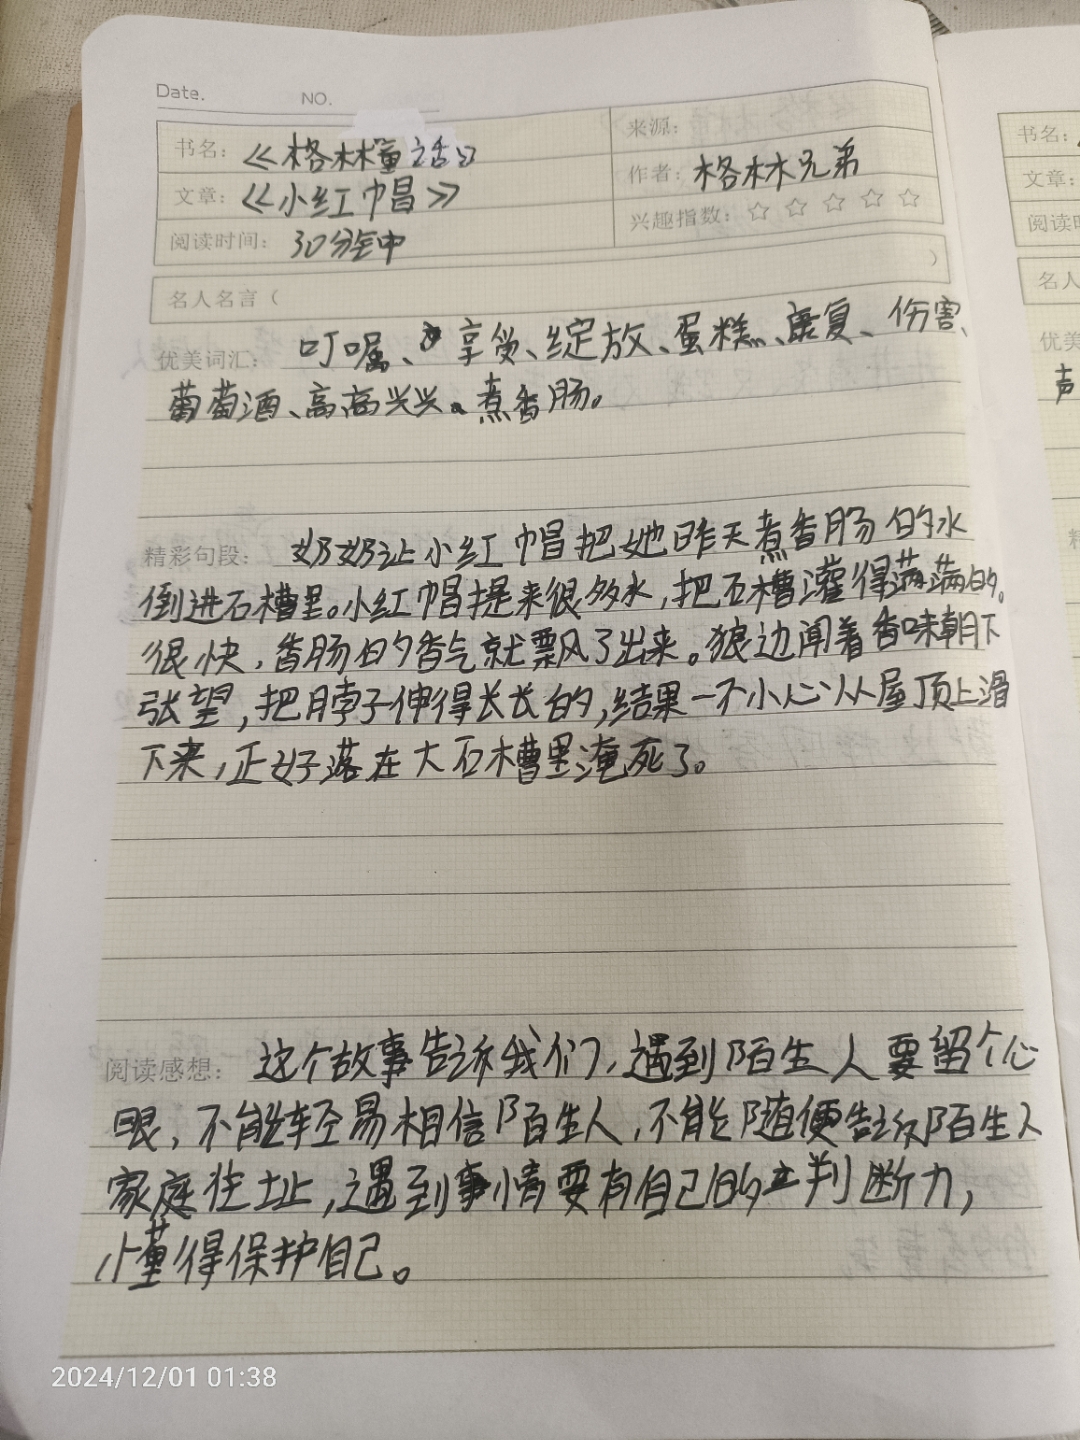 Date.
NO.
书名：《格林童话》
来源：
作者：格林兄弟
文章：《小红帽》
兴趣指数：☆ ☆ ☆ ☆ ☆
阅读时间：30分钟
名人名言（ ）
优美词汇： 叮嘱、享受、绽放、蛋糕、康复、伤害、
葡萄酒、高高兴兴。煮香肠。
精彩句段： 奶奶让小红帽把她昨天煮香肠的水
倒进石槽里。小红帽提来很多水，把石槽灌得满满的。
很快，香肠的香气就飘了出来。狼边闻着香味朝下
张望，把脖子伸得长长的，结果一不小心从屋顶上滑
下来，正好落在大石槽里淹死了。
阅读感想： 这个故事告诉我们，遇到陌生人要留个心
眼，不能轻易相信陌生人，不能随便告诉陌生人
家庭住址，遇到事情要有自己的判断力，
懂得保护自己。
书名：
文章：
阅读时
名人
优美
声
2024/12/01 01:38